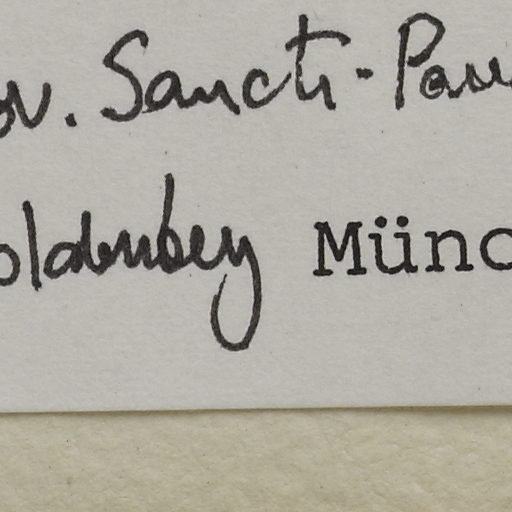 ov. Sancti-Pau
oldenberg Münc